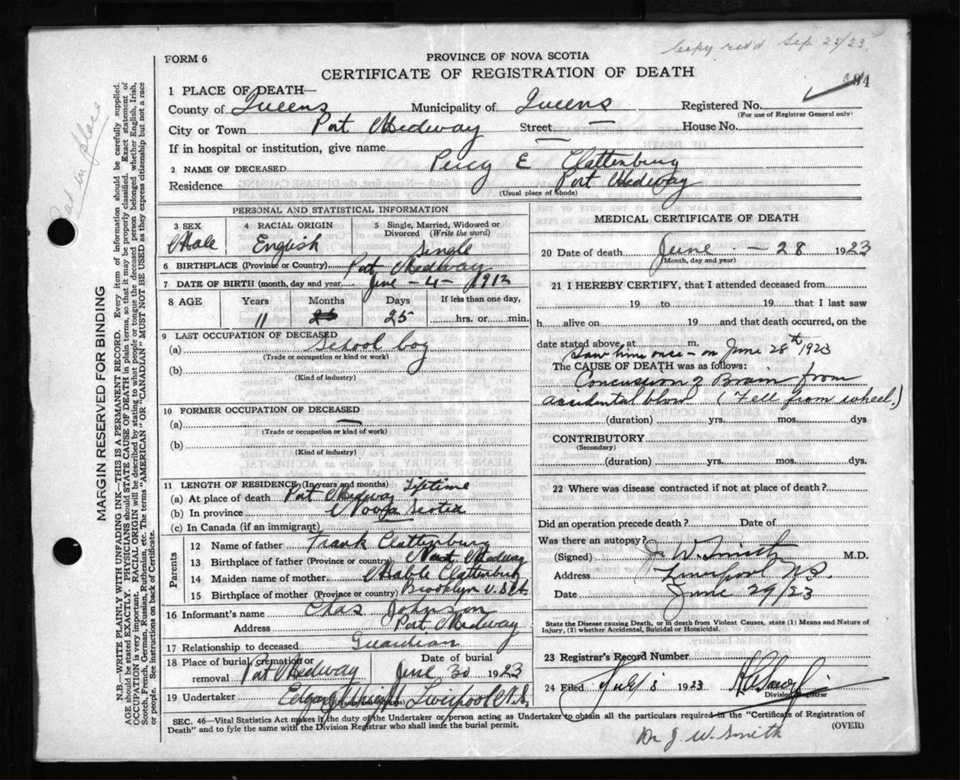 Copy red'd Sep 22/23
FORM 6
PROVINCE OF NOVA SCOTIA
CERTIFICATE OF REGISTRATION OF DEATH
1 PLACE OF DEATH—
County of Queens Municipality of Queens Registered No.
(For use of Registrar General only)
City or Town Port Medway Street — House No.
If in hospital or institution, give name —
2 NAME OF DECEASED Percy E Clattenburg
Residence Port Medway
(Usual place of abode)
PERSONAL AND STATISTICAL INFORMATION
3 SEX Male
4 RACIAL ORIGIN English
5 Single, Married, Widowed or Divorced (Write the word) Single
6 BIRTHPLACE (Province or Country) Port Medway
7 DATE OF BIRTH (month, day and year) June - 4 - 1912
8 AGE Years Months Days If less than one day,
11 25 hrs. or min.
9 LAST OCCUPATION OF DECEASED
(a) School boy
(Trade or occupation or kind or work)
(b)
(Kind of industry)
10 FORMER OCCUPATION OF DECEASED
(a) —
(Trade or occupation or kind of work)
(b)
(Kind of industry)
11 LENGTH OF RESIDENCE (In years and months)
(a) At place of death Port Medway Lifetime
(b) In province Nova Scotia
(c) In Canada (if an immigrant)
Parents
12 Name of father Frank Clattenburg
13 Birthplace of father (Province or country) Port Medway
14 Maiden name of mother Mable Clattenburg
15 Birthplace of mother (Province or country) Brooklyn U.S.A.
16 Informant's name Chas Johnson
Address Port Medway
17 Relationship to deceased Guardian
18 Place of burial, cremation or removal Port Medway Date of burial June 30 1923
19 Undertaker Liverpool N.S.
MEDICAL CERTIFICATE OF DEATH
20 Date of death June - 28 1923
(Month, day and year)
21 I HEREBY CERTIFY, that I attended deceased from
19 to 19 that I last saw
h alive on 19 and that death occurred, on the
date stated above, at m.
Saw him once - on June 28th 1923
The CAUSE OF DEATH was as follows:
Concussion of Brain from
accidental blow (Fell from wheel.)
(duration) yrs. mos. dys
CONTRIBUTORY
(Secondary)
(duration) yrs. mos. dys.
22 Where was disease contracted if not at place of death?
Did an operation precede death? Date of
Was there an autopsy?
(Signed) J. W. Smith M.D.
Address Liverpool N.S.
Date June 29/23
State the Disease causing Death, or in death from Violent Causes, state (1) Means and Nature of Injury, (2) whether Accidental, Suicidal or Homicidal.
23 Registrar's Record Number
24 Filed July 5 1923
Division Registrar
SEC. 46—Vital Statistics Act makes it the duty of the Undertaker or person acting as Undertaker to obtain all the particulars required in the "Certificate of Registration of
Death" and to file the same with the Division Registrar who shall issue the burial permit.
(OVER)
Dr J. W. Smith
MARGIN RESERVED FOR BINDING
N.B.—WRITE PLAINLY WITH UNFADING INK—THIS IS A PERMANENT RECORD. Every item of information should be carefully supplied.
AGE should be stated EXACTLY. PHYSICIANS should STATE CAUSE OF DEATH in plain terms, so that it may be properly classified. Exact statement of
OCCUPATION is very important. RACIAL ORIGIN will be described by stating to what people or tongue the deceased person belonged whether English, Irish,
Scotch, French, German, Russian, Ruthenian, etc. The terms "AMERICAN" OR "CANADIAN" MUST NOT BE USED as they express citizenship but not a race
or people. See instructions on back of Certificate.